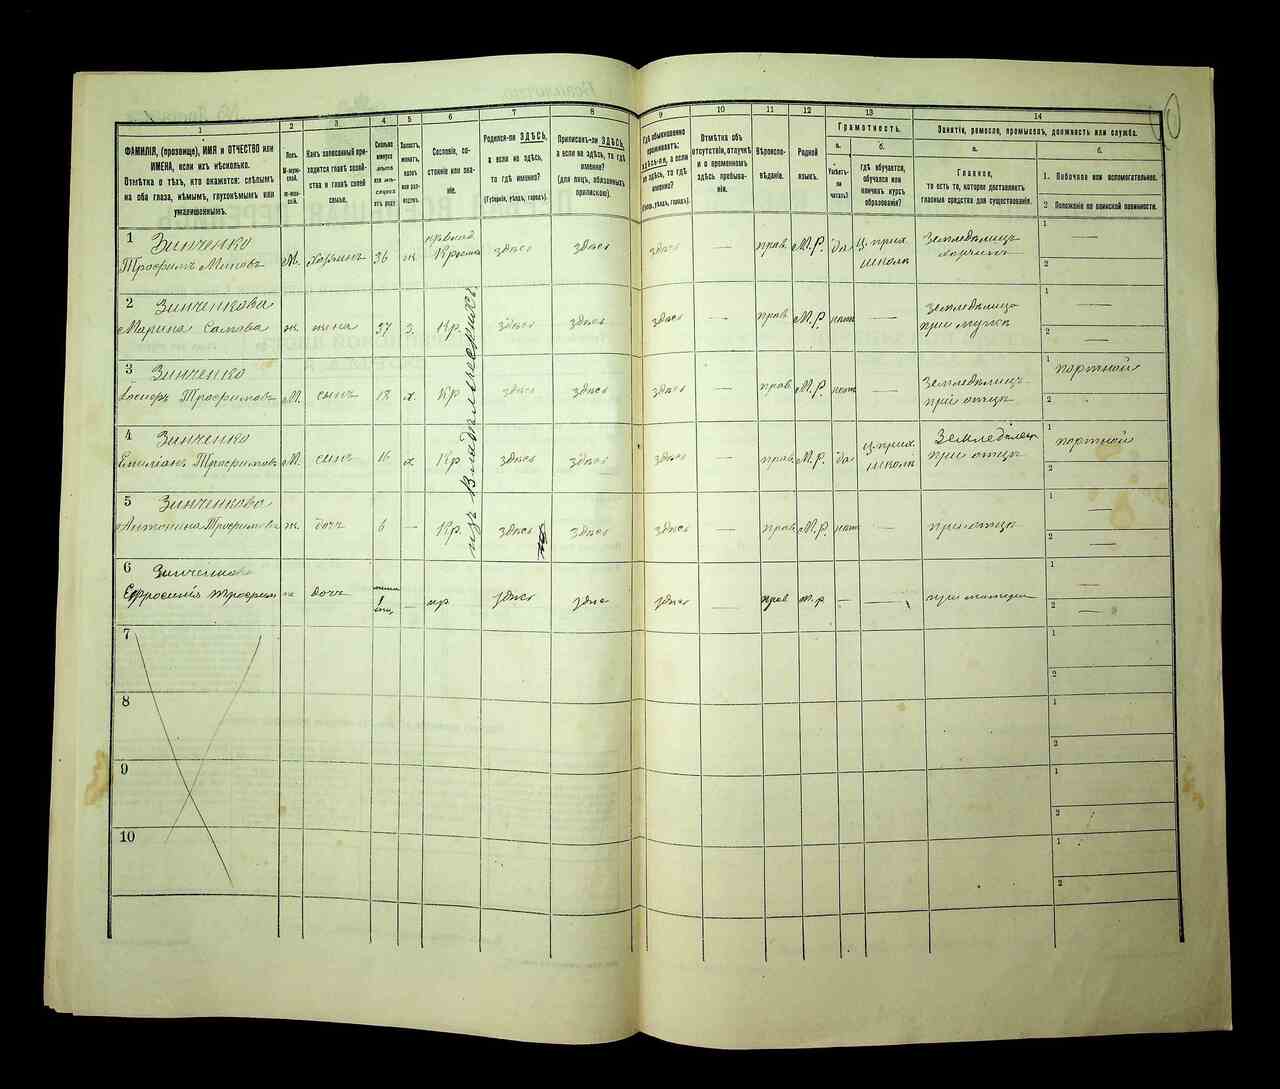 1
2
3
4
5
6
7
8
9
10
11
12
13
14
ФАМИЛІЯ, (прозвище), ИМЯ и ОТЧЕСТВО или
ИМЕНА, если ихъ нѣсколько.
Отмѣтка о тѣхъ, кто окажется: слѣпымъ
на оба глаза, нѣмымъ, глухонѣмымъ или
умалишеннымъ.
Полъ.
М-муж-
ской.
Ж-жен-
скій.
Какъ записанный при-
ходится главѣ хозяй-
ства и главѣ своей
семьи.
Сословіе, со-
стояніе или зва-
ніе.
Родился-ли ЗДѢСЬ,
а если не здѣсь,
то гдѣ именно?
(Губернія, уѣздъ, городъ).
Приписанъ-ли ЗДѢСЬ,
а если не здѣсь, то гдѣ
именно?
(для лицъ, обязанныхъ
припискою).
Гдѣ обыкновенно
проживаетъ:
здѣсь-ли, а если
не здѣсь, то гдѣ
именно?
(Губерн., уѣздъ, городъ).
Отмѣтка объ
отсутствіи, отлучкѣ
и о временномъ
здѣсь пребыва-
ніи.
Вѣроиспо-
вѣданіе.
Родной
языкъ.
Грамотность.
а.
Умѣетъ-
ли
читать?
б.
гдѣ обучается,
обучался или
кончилъ курсъ
образованія?
Занятіе, ремесло, промыселъ, должность или служба.
а.
Главное,
то есть то, которое доставляетъ
главныя средства для существованія.
б.
1. Побочное или вспомогательное.
2. Положеніе по воинской повинности.
1 Зинченко
Трофимъ М. хозяинъ 36 ж Крест здѣсь здѣсь здѣсь — прав. М.Р. да Ц. прих. школа Земледѣлецъ 1 — 2
2 Зинченкова
Марина Саввова ж жена 37 з. Кр. здѣсь здѣсь здѣсь — прав. М.Р. нѣтъ — Земледѣлица при мужѣ 1 — 2 —
3 Зинченко
Іосифъ Трофимовъ М. сынъ 18 х. Кр здѣсь здѣсь здѣсь — прав. М.Р. нѣтъ — Земледѣлецъ при отцѣ 1 портной 2
4 Зинченко
Емиліанъ Трофимовъ М. сынъ 16 х Кр здѣсь здѣсь здѣсь — прав. М.Р. да Ц. прих. школа Земледѣлец при отцѣ 1 портной 2
5 Зинченкова
Антонина Трофимова ж. дочь 6 — Кр. здѣсь здѣсь здѣсь — прав. М.Р. нѣтъ — при отцѣ 1 — 2 —
изъ владѣльческихъ
6 Зинченкова
Ефросинія Трофим дочь — кр здѣсь здѣс здѣсь — прав м.р — — при матери 1 — 2 —
7 1
2
8 1
2
9 1
2
10 1
2